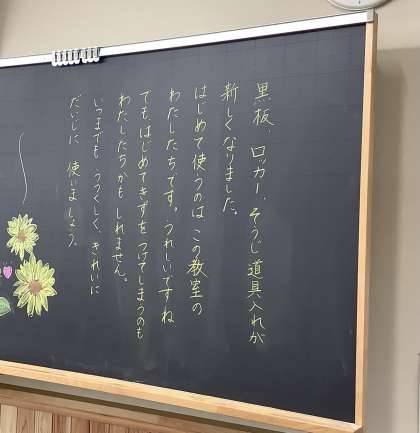 黒板、ロッカー、そうじ道具入れが
新しくなりました。
はじめて使うのは この教室の
わたしたち、です。うれしいですね
でも、はじめてきずを つけてしまうのも
わたしたちかも しれません。
いつまでも うつくしく、きれいに
だいじに 使いましょう。